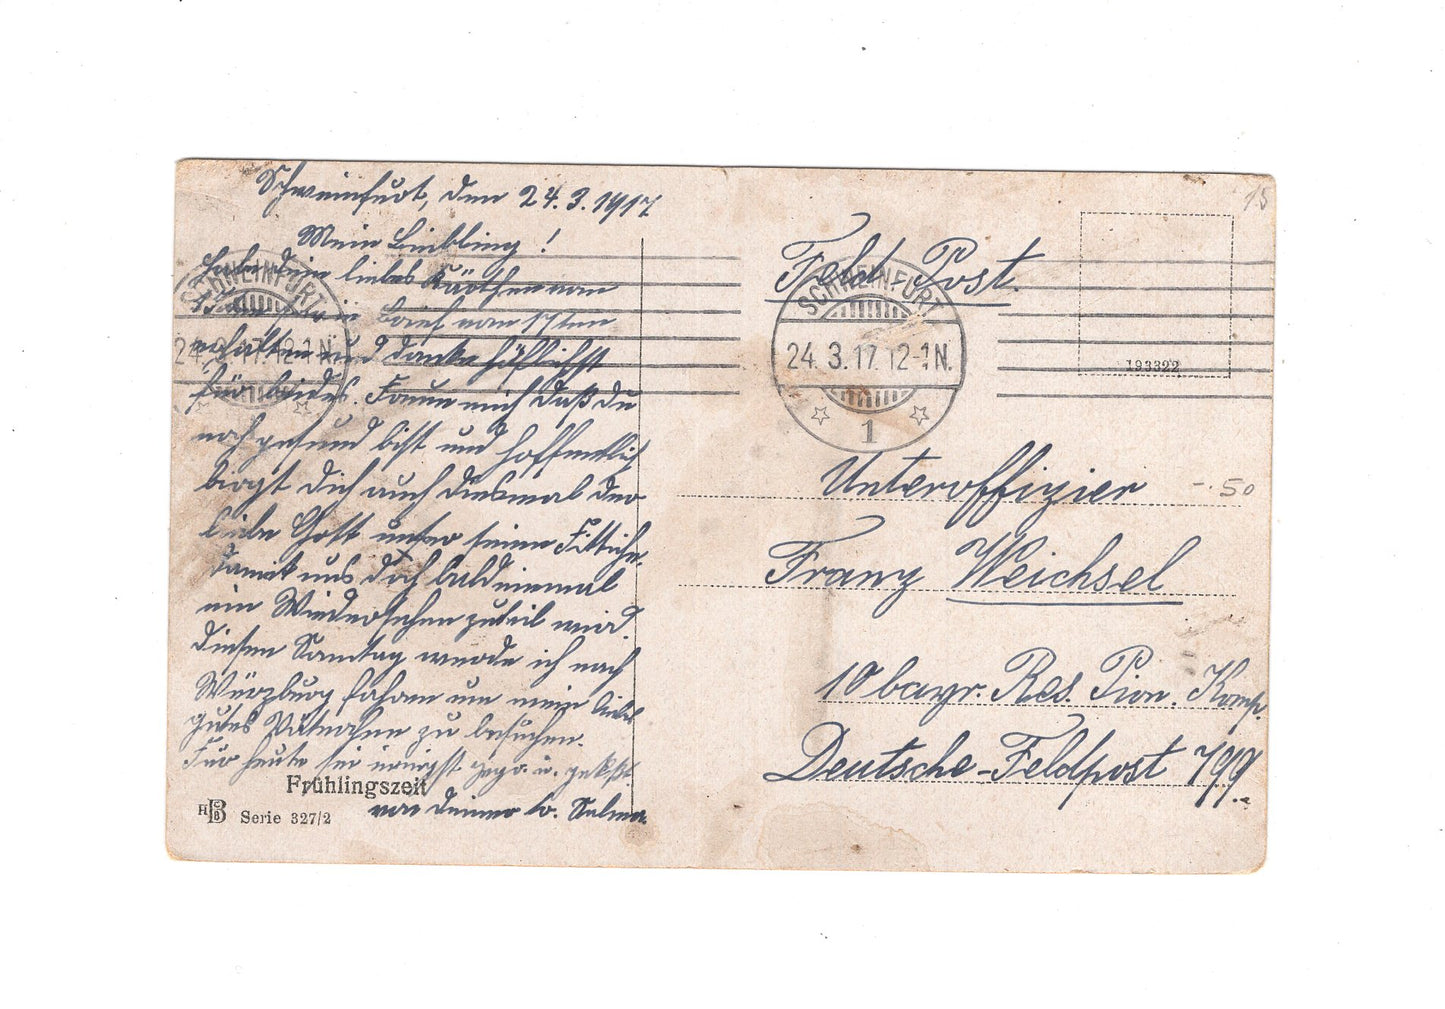 Schweinfurt, den 24.3.1917
Mein Liebling!
Habe dein liebes Kärtchen vom
Brief vom 17ten
erhalten und danke höflichst
für beides. Freue mich daß du
noch gesund bist und hoffentlich
birgt dich auch diesmal der
liebe Gott unter seine Fittiche
damit uns doch bald einmal
ein Wiedersehen zuteil wird.
Diesen Samstag werde ich nach
Würzburg fahren um mein liebes
gutes zu besuchen.
Für heute sei innigst gegr. u. geküßt
von deiner lb. Selma
Frühlingszeit
HB Serie 327/2
SCHWEINFURT
24.3.17.12-1N.
Feld Post.
SCHWEINFURT
24.3.17.12-1N.
1
193322
15
Unteroffizier
-.50
Franz Weichsel
10 bayr. Res. Pion. Komp.
Deutsche-Feldpost 799.